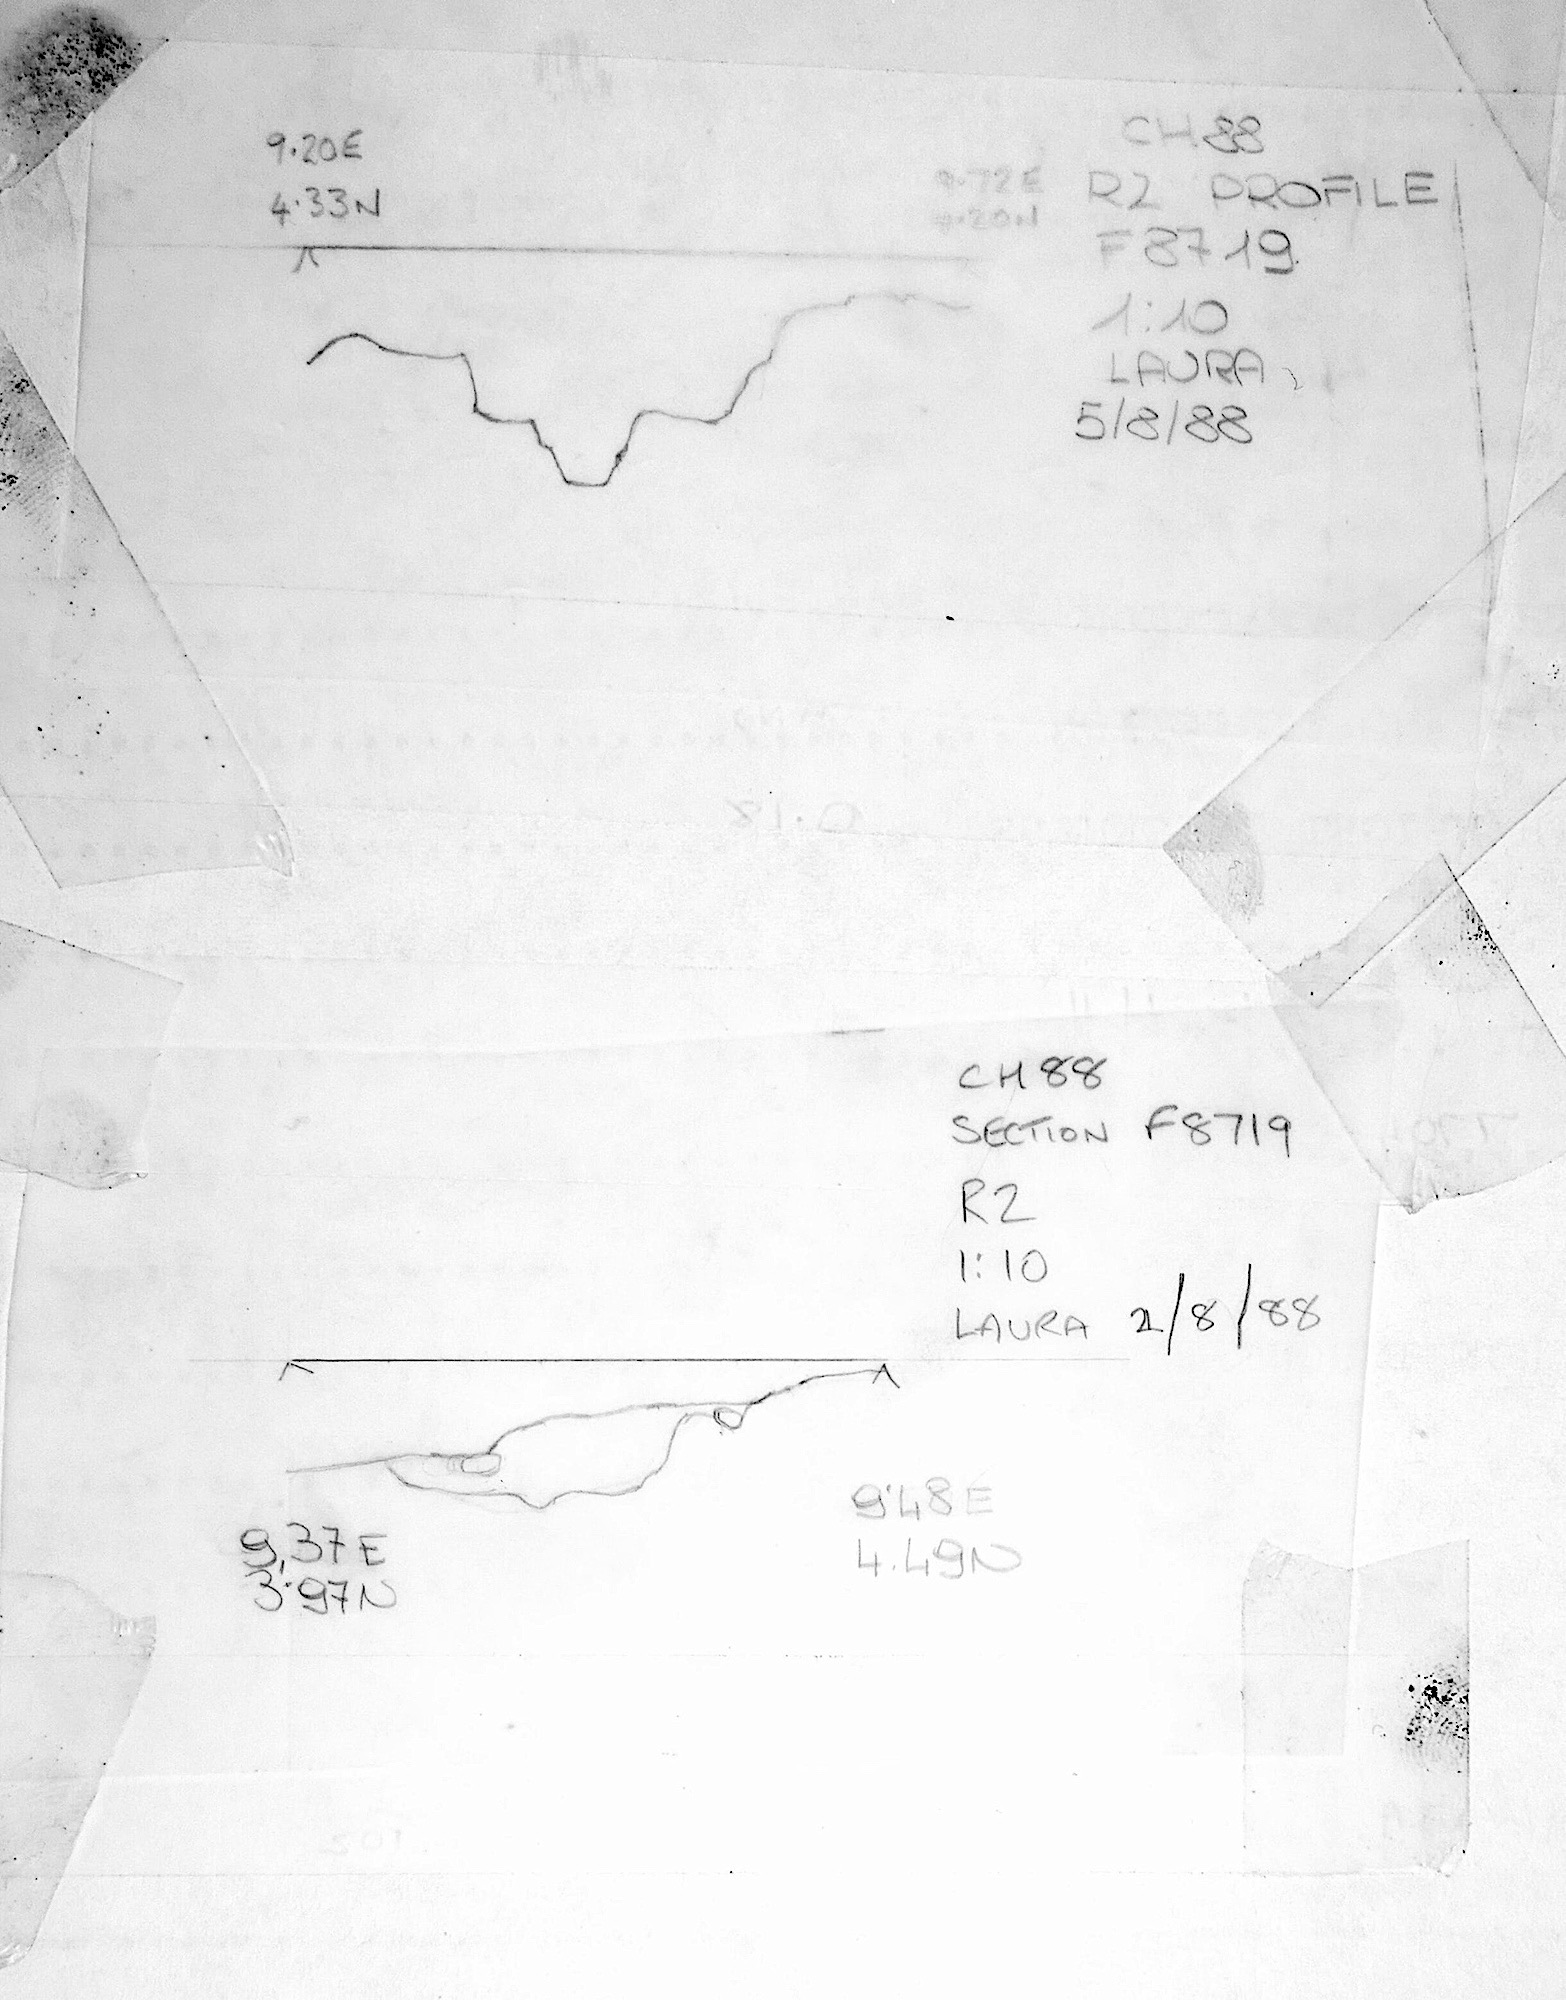 9.20E
4.33N
9.72E
4.20N
CH88
R2 PROFILE
F8719
1:10
LAURA
5/8/88
0.18
CH88
SECTION F8719
R2
1:10
LAURA 2/8/88
9.37E
3.97N
9.48E
4.49N